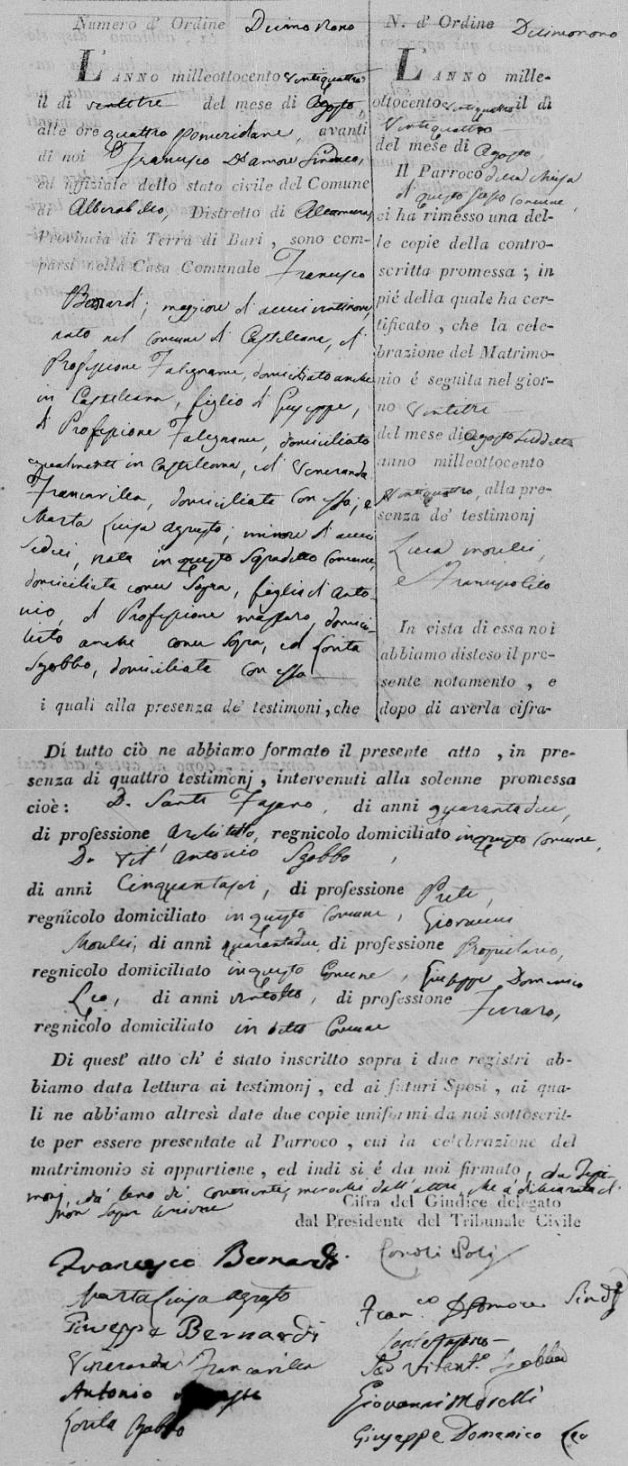 Numero d' Ordine Decimonono
L'ANNO milleottocento ventiquattro
il dì ventitre del mese di Agosto
alle ore quattro pomeridiane, avanti
di noi Francesco D'amore Sindaco,
ed uffiziale dello stato civile del Comune
di Alberobello, Distretto di Altamura,
Provincia di Terra di Bari, sono com-
parsi nella Casa Comunale Francesco
Bernardi; maggiore di anni ventinove
nato nel comune di Castellana, di
Professione Falegname, domiciliato anche
in Castellana, figlio di Giuseppe,
di Professione Falegname, domiciliato
egualmente in Castellana, e di Veneranda
Francavilla, domiciliata con esso; e
Marta Luisa Agrusto; minore di anni
sedici, nata in questo Sopradetto Comune,
domiciliata come Sopra, figlia di Anto-
nio, di Professione massaro, domici-
liato anche come Sopra, ed
Sgobbo, domiciliata con esso
i quali alla presenza de' testimoni, che
N. d' Ordine Decimonono
L'ANNO mille-
ottocento ventiquattro il dì
Ventiquattro
del mese di Agosto,
Il Parroco della Chiesa
di questo stesso Comune,
ci ha rimesso una del-
le copie della contro-
scritta promessa; in
piè della quale ha cer-
tificato, che la cele-
brazione del Matrimo-
nio é seguita nel gior-
no Ventitre
del mese di Agosto suddetto
anno milleottocento
Ventiquattro, alla pre-
senza de' testimonj
Luca
e
In vista di essa noi
abbiamo disteso il pre-
sente notamento, e
dopo di averla cifra-
Di tutto ciò ne abbiamo formato il presente atto, in pre-
senza di quattro testimonj, intervenuti alla solenne promessa
cioè: D. Sante di anni quarantadue,
di professione Architetto, regnicolo domiciliato in questo Comune,
Dn Vit' Antonio Sgobbo,
di anni Cinquantasei, di professione Prete,
regnicolo domiciliato in questo Comune, Giovanni
Morelli, di anni quarantadue, di professione Proprietario,
regnicolo domiciliato in questo Comune, Giuseppe Domenico
Leo, di anni ventotto, di professione Ferraro,
regnicolo domiciliato in detto Comune
Di quest' atto ch' é stato inscritto sopra i due registri ab-
biamo data lettura ai testimonj, ed ai futuri Sposi, ai qua-
li ne abbiamo altresì date due copie uniformi da noi sottoscrit-
te per essere presentate al Parroco, cui la celebrazione del
matrimonio si appartiene, ed indi si é da noi firmato, da Testi-
monj,
non saper scrivere
Cifra del Giudice delegato
dal Presidente del Tribunale Civile
Francesco Bernardi
Marta Luisa Agrusto
Giuseppe Bernardi
Veneranda Francavilla
Antonio
Sgobbo
Franco D'Amore Sind
Vitant.o Sgobbo
Giovanni Morelli
Giuseppe Domenico Leo